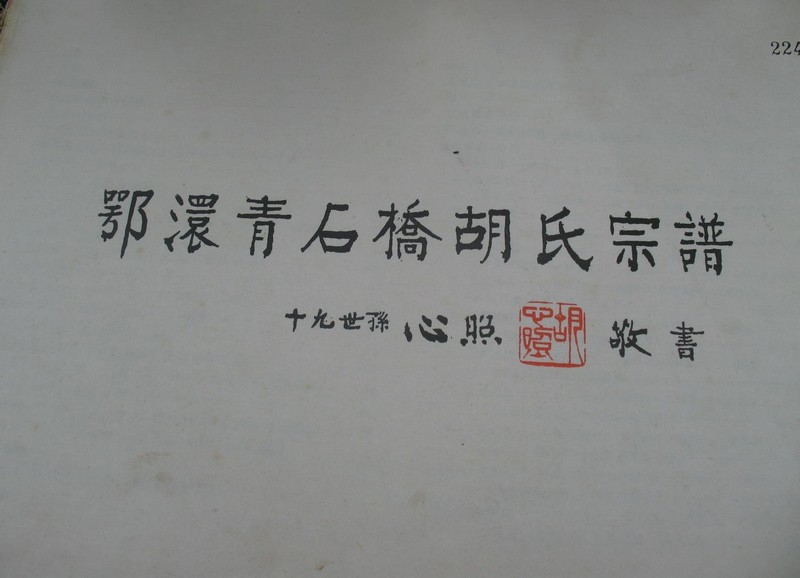 224
鄂澴青石橋胡氏宗譜
十九世孫 心照 胡心照 敬書